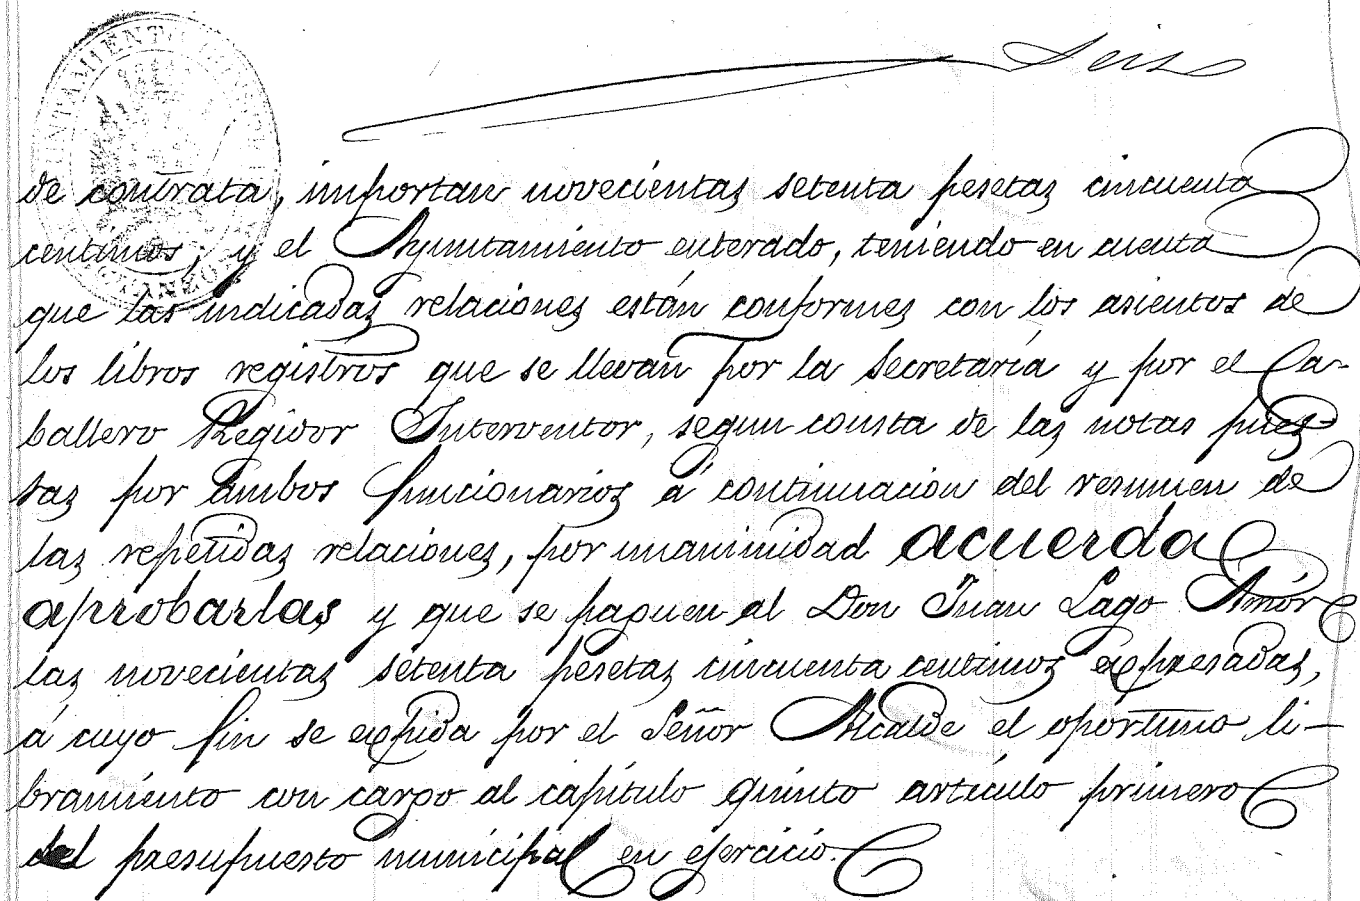 Seis
de contrata, importan novecientas setenta pesetas cincuenta
centimos; y el Ayuntamiento enterado, teniendo en cuenta
que las indicadas relaciones están conformes con los asientos de
los libros registros que se llevan por la Secretaría y por el Ca-
ballero Regidor Interventor, segun consta de las notas pues-
tas por ambos funcionarios á continuacion del resumen de
las repetidas relaciones, por unanimidad acuerda
aprobarlas y que se paguen al Don Juan Lago Amor
las novecientas setenta pesetas cincuenta centimos expresadas,
á cuyo fin se expida por el Señor Alcalde el oportuno li-
bramiento con cargo al capítulo quinto artículo primero
del presupuesto municipal en ejercicio.